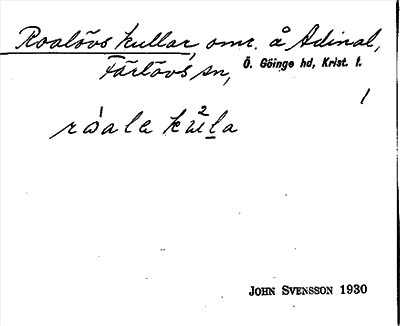 Roalövs kullar, omr. å Adinal,
Färlövs sn, Ö. Göinge hd, Krist. l.
1
John Svensson 1930